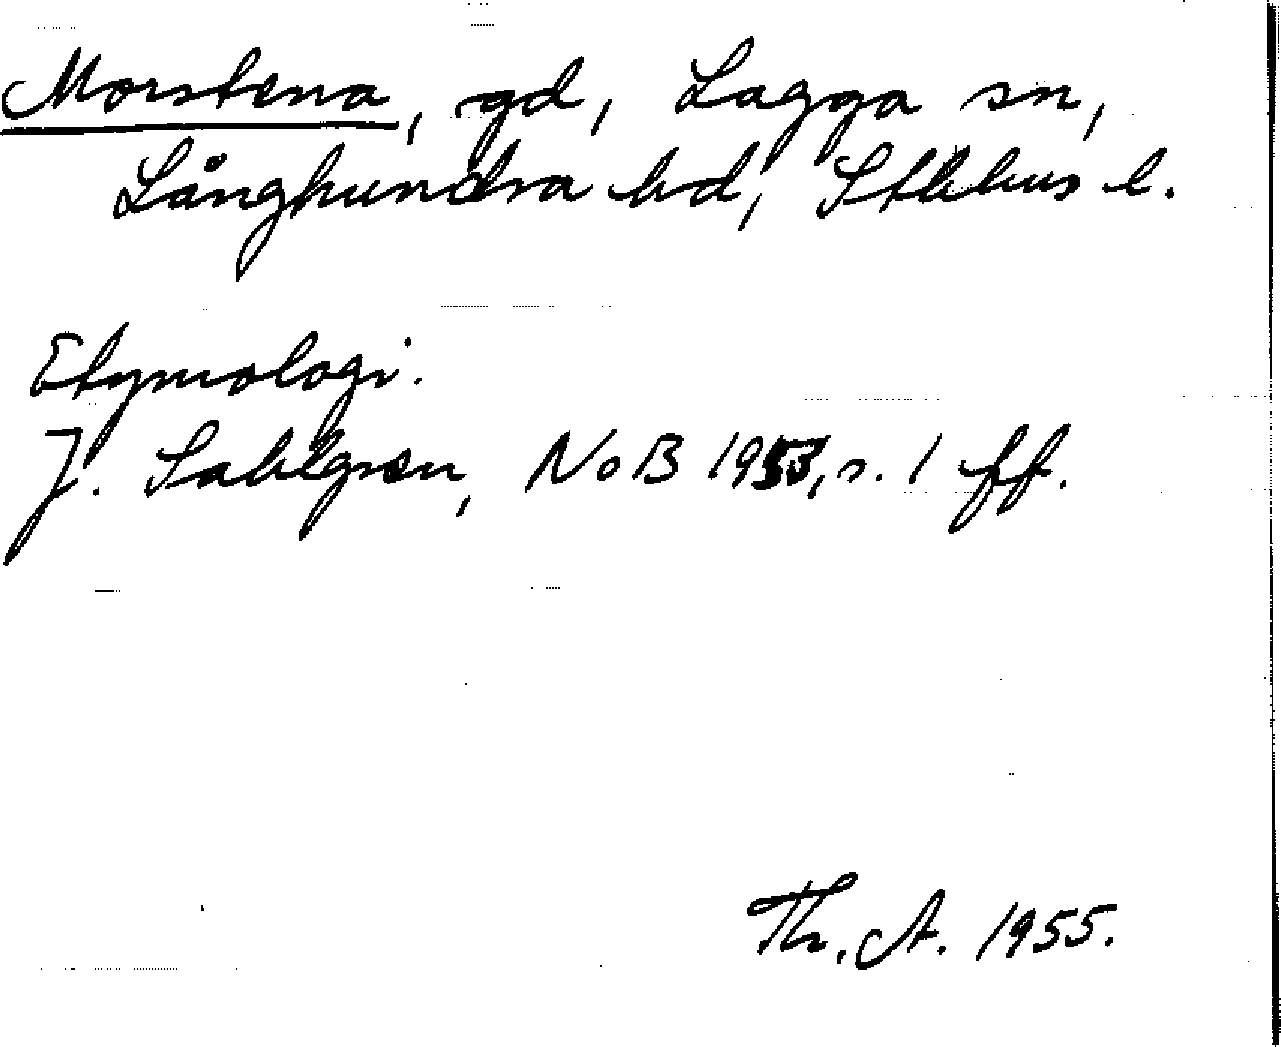 Morstena, gd, Lagga sn,
Långhundra hd, Sthlms l.
Etymologi.
J. Sahlgren, NoB 1953, s. 1 ff.
Th. A. 1955.